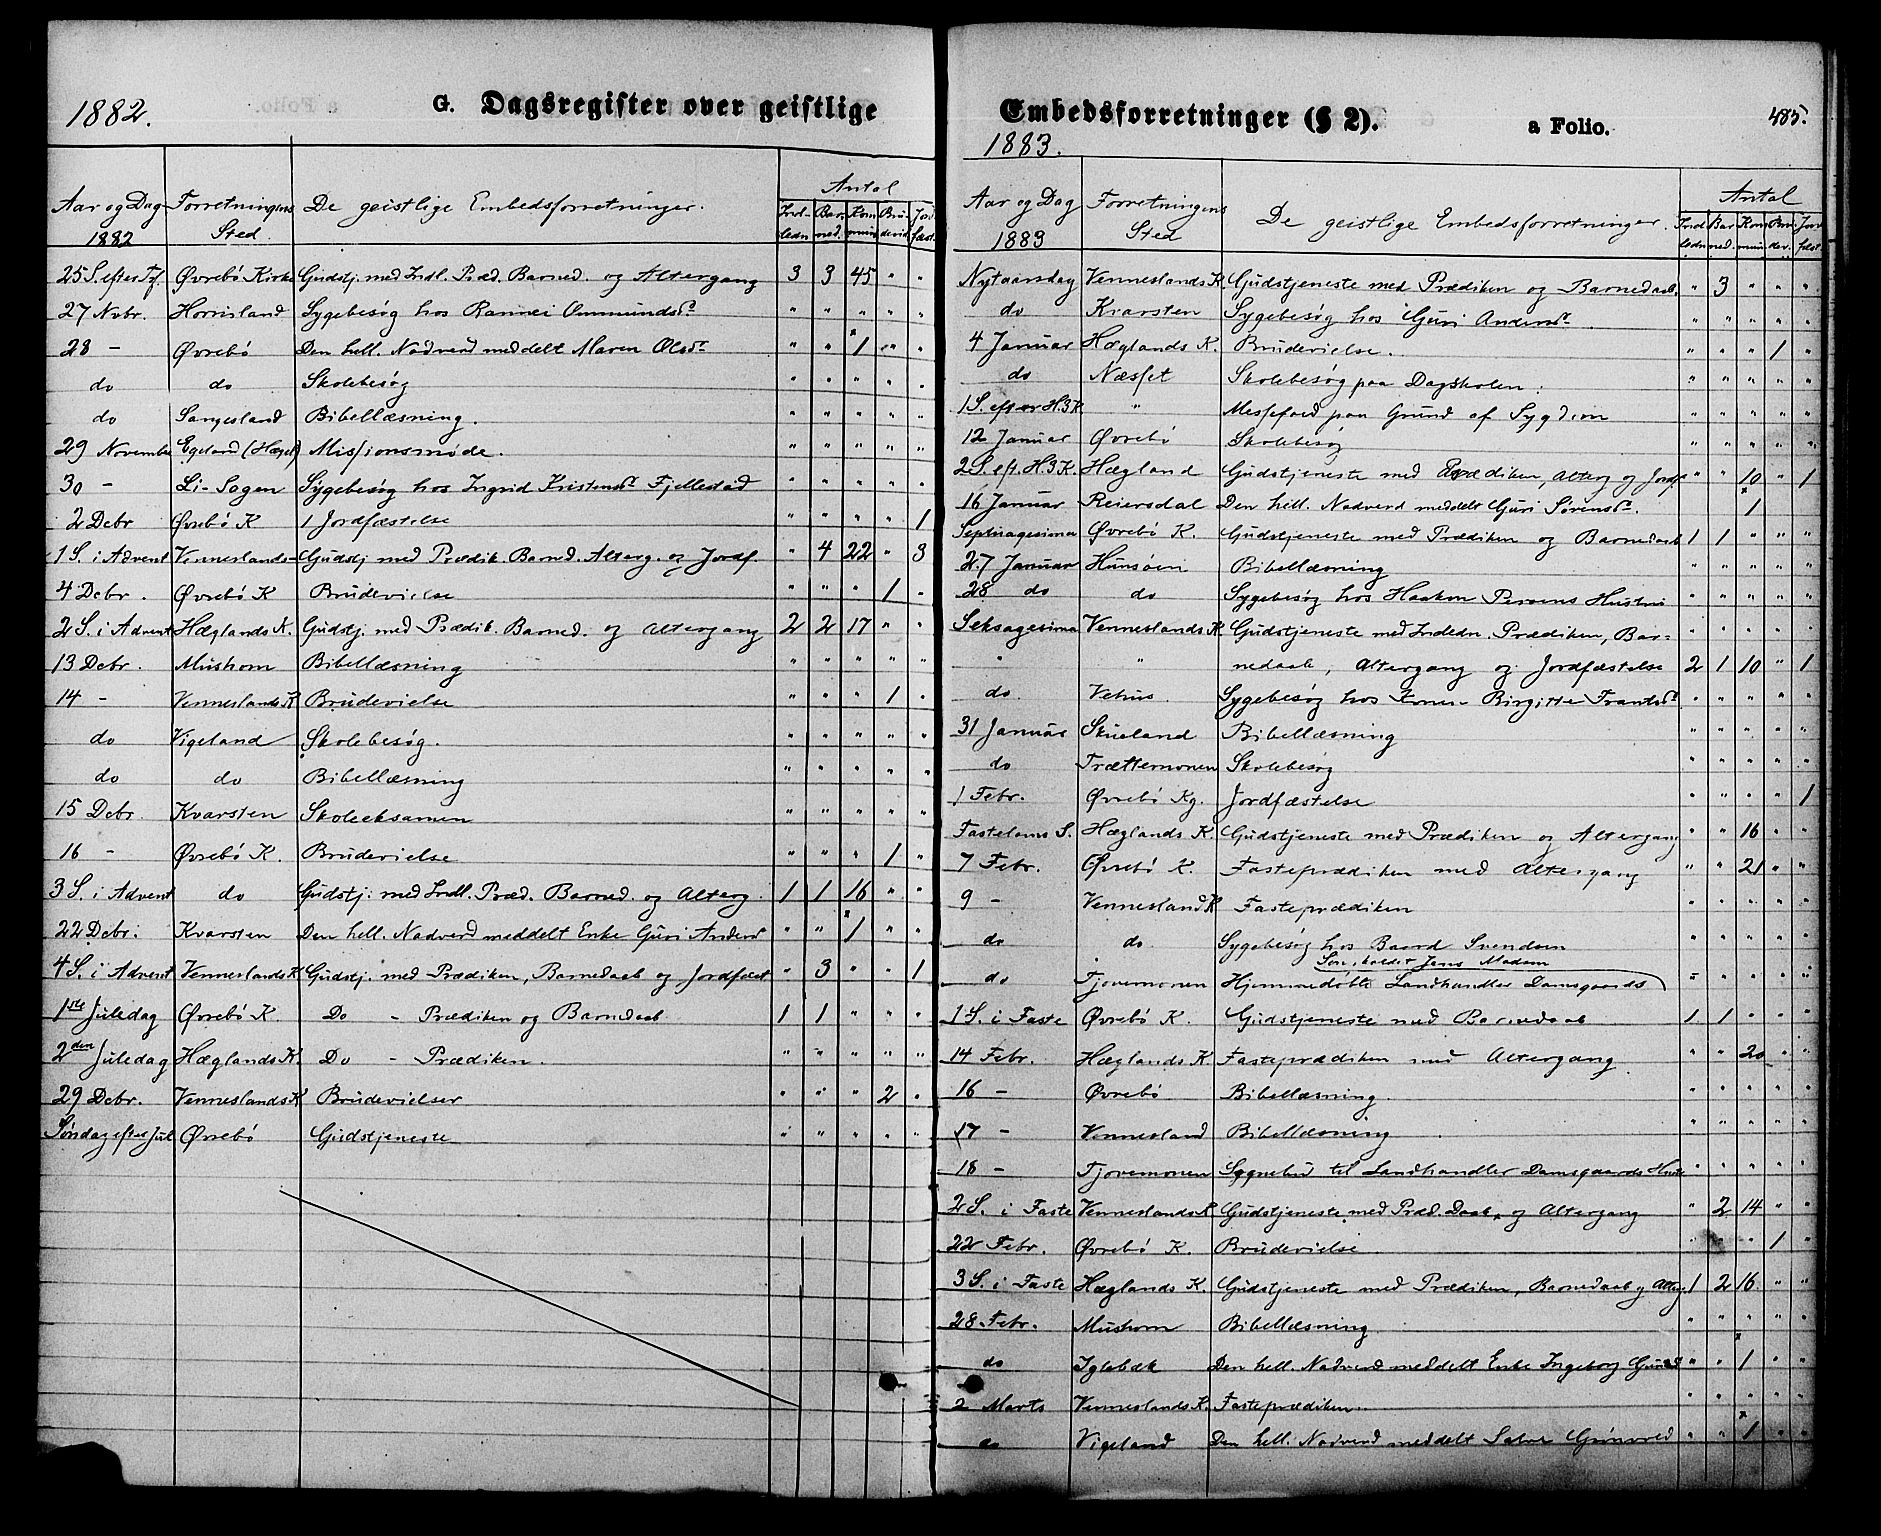 1882.
G. Dagsregister over geistlige
Antal
Aar og Dag Forretningens De geistlige Embedsforretninger. Ind- Bar- Kom Bru- Jord
1882 Sted ledn ned. mun. devid. fæst.
25 S. efter Tf. Øvrebö Kirke Gudstj. med Indl. Præd. Barned. og Altergang 3 3 45 " "
27 Nvbr. Homsland Sygebesøg hos Rannei Ommundsd " " " " "
28 - Øvrebö Den hell. Nadverd meddelt Maren Olsdr " " 1 " "
do do Skolebesøg " " " " "
do Sangesland Bibellæsning. " " " " "
29 November Egeland (Hægel) Missionsmøde. " " " " "
30 - Li-Sagen Sygebesøg hos Ingrid Kristensdr Fjellestad " " " " "
2 Debr Øvrebö K 1 Jordfæstelse " " " " 1
1 S. i Advent Venneslands- Gudstj med Prædik. Barned. Alterg. og Jordf. " 4 22 " 3
4 Debr. Øvrebö K Brudevielse " " " 1 "
2 S. i Advent Hæglands K. Gudstj. med Prædik. Barned. og Altergang 2 2 17 " "
13 Debr. Mushom Bibellæsning " " " " "
14 - Venneslands K Brudevielse " " " 1 "
do Vigeland Skolebesøg. " " " " "
do do Bibellæsning " " " " "
15 Debr. Kvarsten Skoleeksamen " " " " "
16 - Øvrebö K. Brudevielse " " " 1 "
3 S. i Advent do Gudstj. med Indl. Præd. Barned. og Alterg. 1 1 16 " "
22 Debr. Kvarsten Den hell. Nadverd meddelt Enke Guri Andersd " " 1 " "
4 S. i Advent Venneslands K Gudstj. med Prædiken, Barnedaab og Jordfæst " 3 " " 1
1ste Juledag Øvrebö K. Do - Prædiken og Barnedaab 1 1 " " "
2den Juledag Hæglands K. Do - Prædiken. " " " " "
29 Debr. Venneslands K Brudevielser " " " 2 "
Søndag efter Jul Øvrebö Gudstjeneste " " " " "
Embedsforretninger (§ 2). a Folio. 485.
1883.
Antal
Aar og Dag Forretningens De geistlige Embedsforretninger. Ind Bar Kom Bru Jord
1883 Sted ledn ned. mun. dev. fæst.
Nytaarsdag Venneslands K Gudstjeneste med Prædiken og Barnedaab. " 3 " " "
do Kvarsten Sygebesøg hos Guri Andersdr " " " " "
4 Januar Hæglands K. Brudevielse. " " " 1 "
do Næsset Skolebesøg paa Dagskolen. " " " " "
1 S. efter H3K " Messefald paa Grund af Sygdom " " " " "
12 Januar Øvrebö Skolebesøg " " " " "
2 S. eft. H3K. Hægland Gudstjeneste med Prædiken, Alterg og Jordf. " " 10 " 1
16 Januar Reiersdal Den hell. Nadverd meddelt Guri Sørensdr. 1
Septuagesima Øvrebö K. Gudstjeneste med Prædiken og Barnedaab 1 1 " " "
27 Januar Hunsöen Bibellæsning " " " " "
28 do do Sygebesøg hos Haakon Persens Hustru " " " " "
Seksagesima Venneslands K. Gudstjeneste med Indledn. Prædiken, Bar- " " " " "
" " nedaab, Altergang og Jordfæstelse 2 1 10 " 1
do Vehus. Sygebesøg hos Birgitte Frantsdr " " " " "
31 Januar Skueland Bibellæsning " " " " "
do Trættemonen Skolebesøg " " " " "
1 Febr. Øvrebö Kg. Jordfæstelse " " " " 1
Fastelavns S. Hæglands K. Gudstjeneste med Prædiken og Altergang " " 16 " "
7 Febr. Øvrebö K. Fasteprædiken med Altergang " " 21 " "
9 - Vennesland K Fasteprædiken " " " " "
do do Sygebesøg hos Baard Svendsen " " " " "
Søn, kaldet Jens Madsen
do Tjovemonen Hjemmedøbte Landhandler Damsgaards " " " " "
1 S. i Faste Øvrebö K. Gudstjeneste med Barnedaab 1 1 " " "
14 Febr. Hæglands K Fasteprædiken med Altergang " " 20 " "
16 - Øvrebö Bibellæsning. " " " " "
17 - Vennesland Bibellæsning " " " " "
18 - Tjovemonen Sognebud til Landhandler Damsgaards " " " " "
2 S. i Faste Venneslands K Gudstjeneste med Præd. Daab, og Altergang " 2 14 " "
22 Febr. Øvrebö K. Brudevielse " " " 1 "
3 S. i Faste Hæglands K. Gudstjeneste med Prædiken, Barnedaab og Alterg. 1 2 16 " "
28 Febr. Mushom Bibellæsning " " " " "
do Iglebæk Den hell. Nadverd meddelt Enke Ingeborg " " 1 " "
2 Marts Venneslands K. Fasteprædiken. " " " " "
do Vigeland Den hell. Nadverd meddelt " " 1 " "